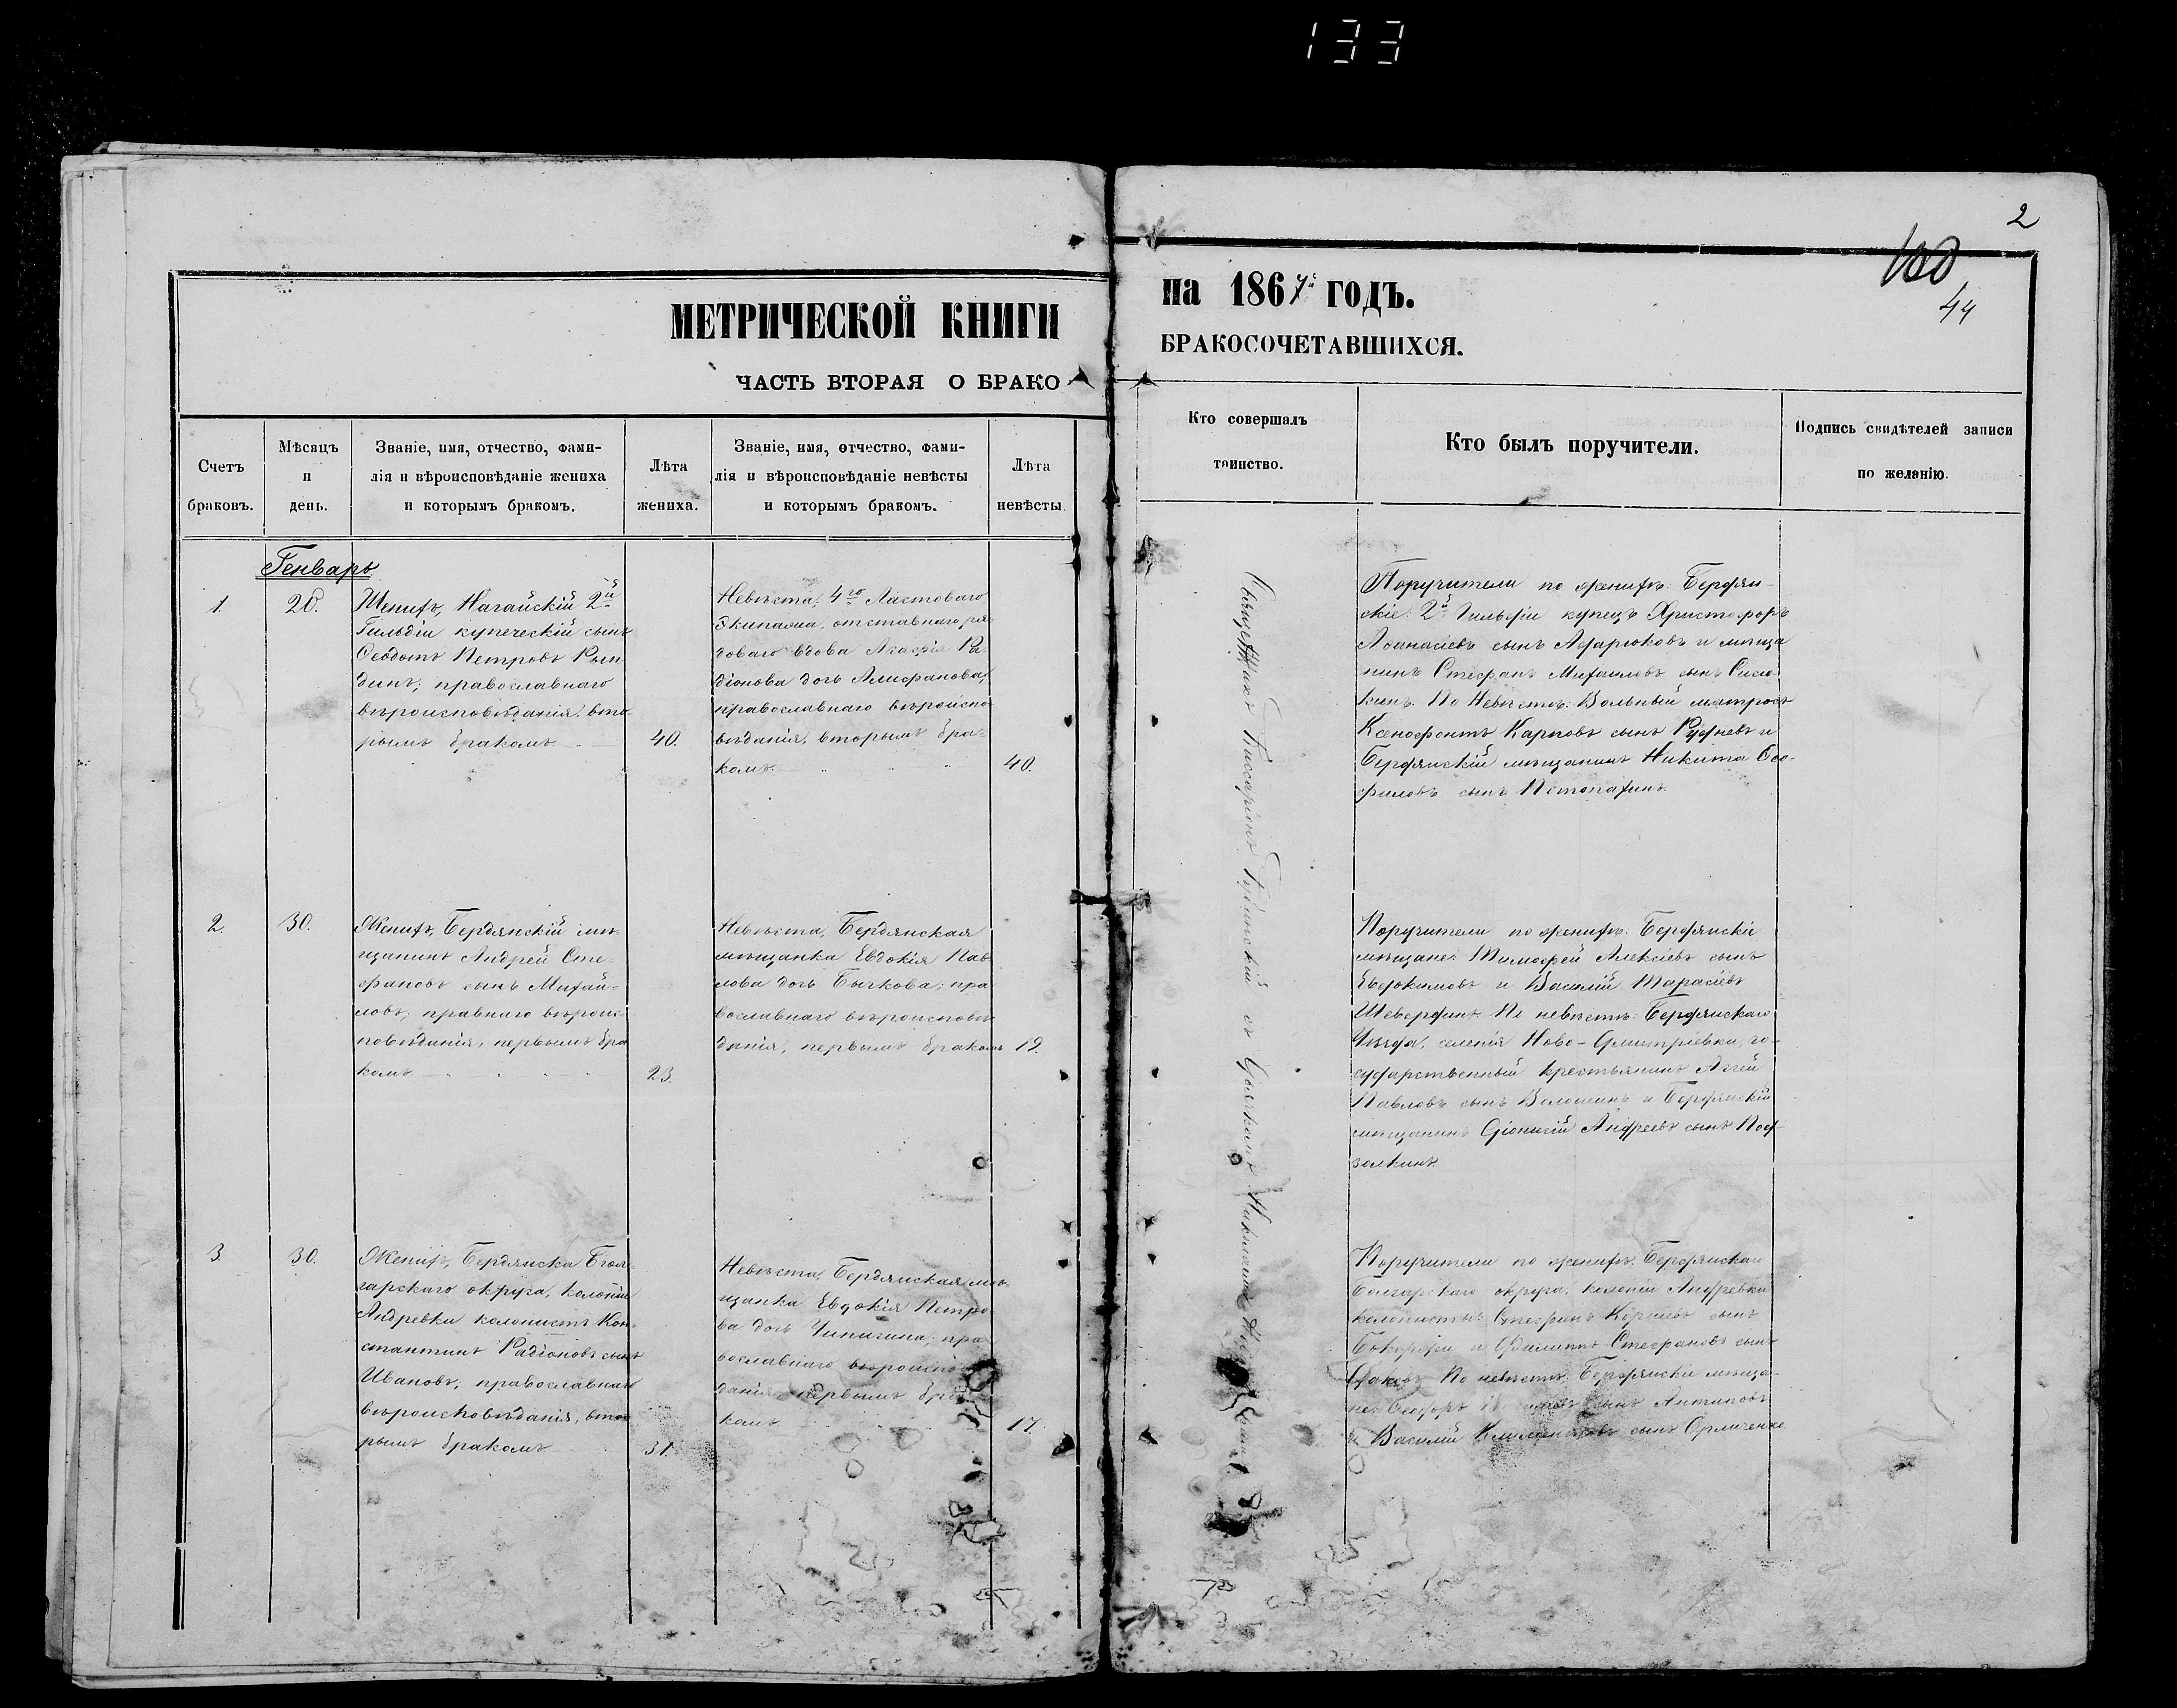 133
2
44
МЕТРИЧЕСКОЙ КНИГИ
на 1867й ГОДЪ.
ЧАСТЬ ВТОРАЯ О БРАКО
БРАКОСОЧЕТАВШИХСЯ.
Счетъ браковъ.
Мѣсяцъ и день.
Званіе, имя, отчество, фами-
лія и вѣроисповѣданіе жениха
и которымъ бракомъ.
Лѣта жениха.
Званіе, имя, отчество, фами-
лія и вѣроисповѣданіе невѣсты
и которымъ бракомъ.
Лѣта невѣсты.
Кто совершалъ
таинство.
Кто былъ поручители.
Подпись свидѣтелей записи
по желанію.
Генварь
1.
20.
Женихъ, Нагайскій 2й
Гильдіи купеческій сынъ
Ѳеодотъ Петровъ Рын-
динъ; православнаго
вѣроисповѣданія, вто-
рымъ бракомъ
40.
Невѣста, 4го Ластоваго
Экипажа, отставнаго ря-
доваго вдова Агафія Ра-
діонова дочь Алифанова,
православнаго вѣроиспо-
вѣданія, вторымъ бра-
комъ.
40.
Священникъ
Поручители по женихѣ: Бердян-
скіе: 2й Гильдіи купецъ Христофоръ
Аѳанасіевъ сынъ и мѣща
нинъ Стефанъ Михаиловъ сынъ
По Невѣстѣ: Вольный матросъ
Ксенофонтъ Карповъ сынъ Рудневъ и
Бердянскій мѣщанинъ Никита Ѳео-
филовъ сынъ
2.
30.
Женихъ, Бердянскій мѣ-
щанинъ Андрей Сте-
фановъ сынъ Михай-
ловъ, правнаго вѣроис-
повѣданія, первымъ бра
комъ
23.
Невѣста, Бердянская
мѣщанка Евдокія Пав
лова дочь Бычкова; пра
вославнаго вѣроисповѣ
данія, первымъ бракомъ
19.
Поручители по женихѣ: Бердянскіе
мѣщане: Тимофей Алексіевъ сынъ
Евдокимовъ и Василій Тарасіевъ
Шевердинъ. По невѣстѣ: Бердянскаго
Уѣзда, селенія Ново-Дмитріевки, го-
сударственный крестьянинъ Аггей
Павловъ сынъ Волошинъ и Бердянскій
мѣщанинъ Діонисій Андреевъ сынъ Под-
золкинъ.
3.
30.
Женихъ, Бердянска Бол-
гарскаго округа, колоніи
Андревки колонистъ Кон-
стантинъ Радіоновъ сынъ
Ивановъ, православнаго
вѣроисповѣданія, вто-
рымъ бракомъ
31.
Невѣста, Бердянская мѣ-
щанка Евдокія Петро-
ва дочь Чипигина, пра
вославнаго вѣроисповѣ
данія первымъ бра-
комъ
17.
Поручители по женихѣ: Бердянскаго
Болгарскаго округа, колоніи Андревки
колонисты: Стефанъ сынъ
и Филиппъ Стефановъ сынъ
По невѣстѣ: Бердянскіе мѣща-
не: Ѳеодоръ сынъ Антиповъ
и Василій сынъ